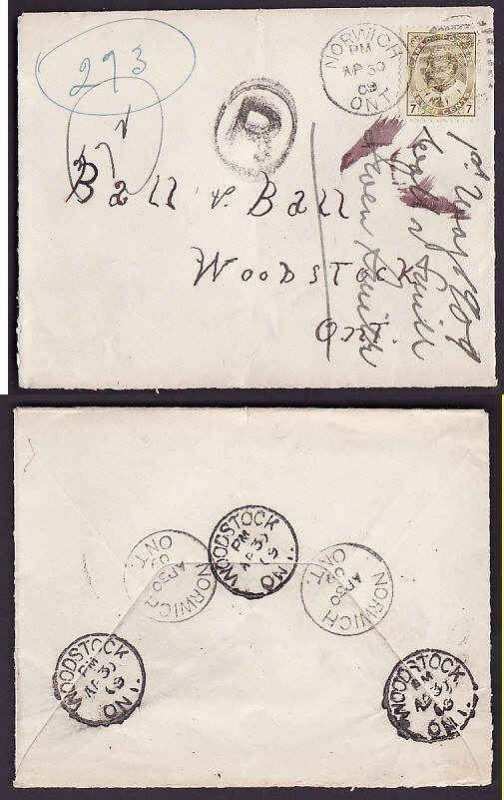 293
NORWICH
PM
AP 30
09
ONT
7 7
R
Ball & Ball
Woodstock
Ont
1st May 1909
WOODSTOCK
PM
AP 30
09
ONT.
NORWICH
AP 30
09
ONT
NORWICH
AP 30
09
ONT
WOODSTOCK
PM
AP 30
09
ONT.
WOODSTOCK
PM
AP 30
09
ONT.